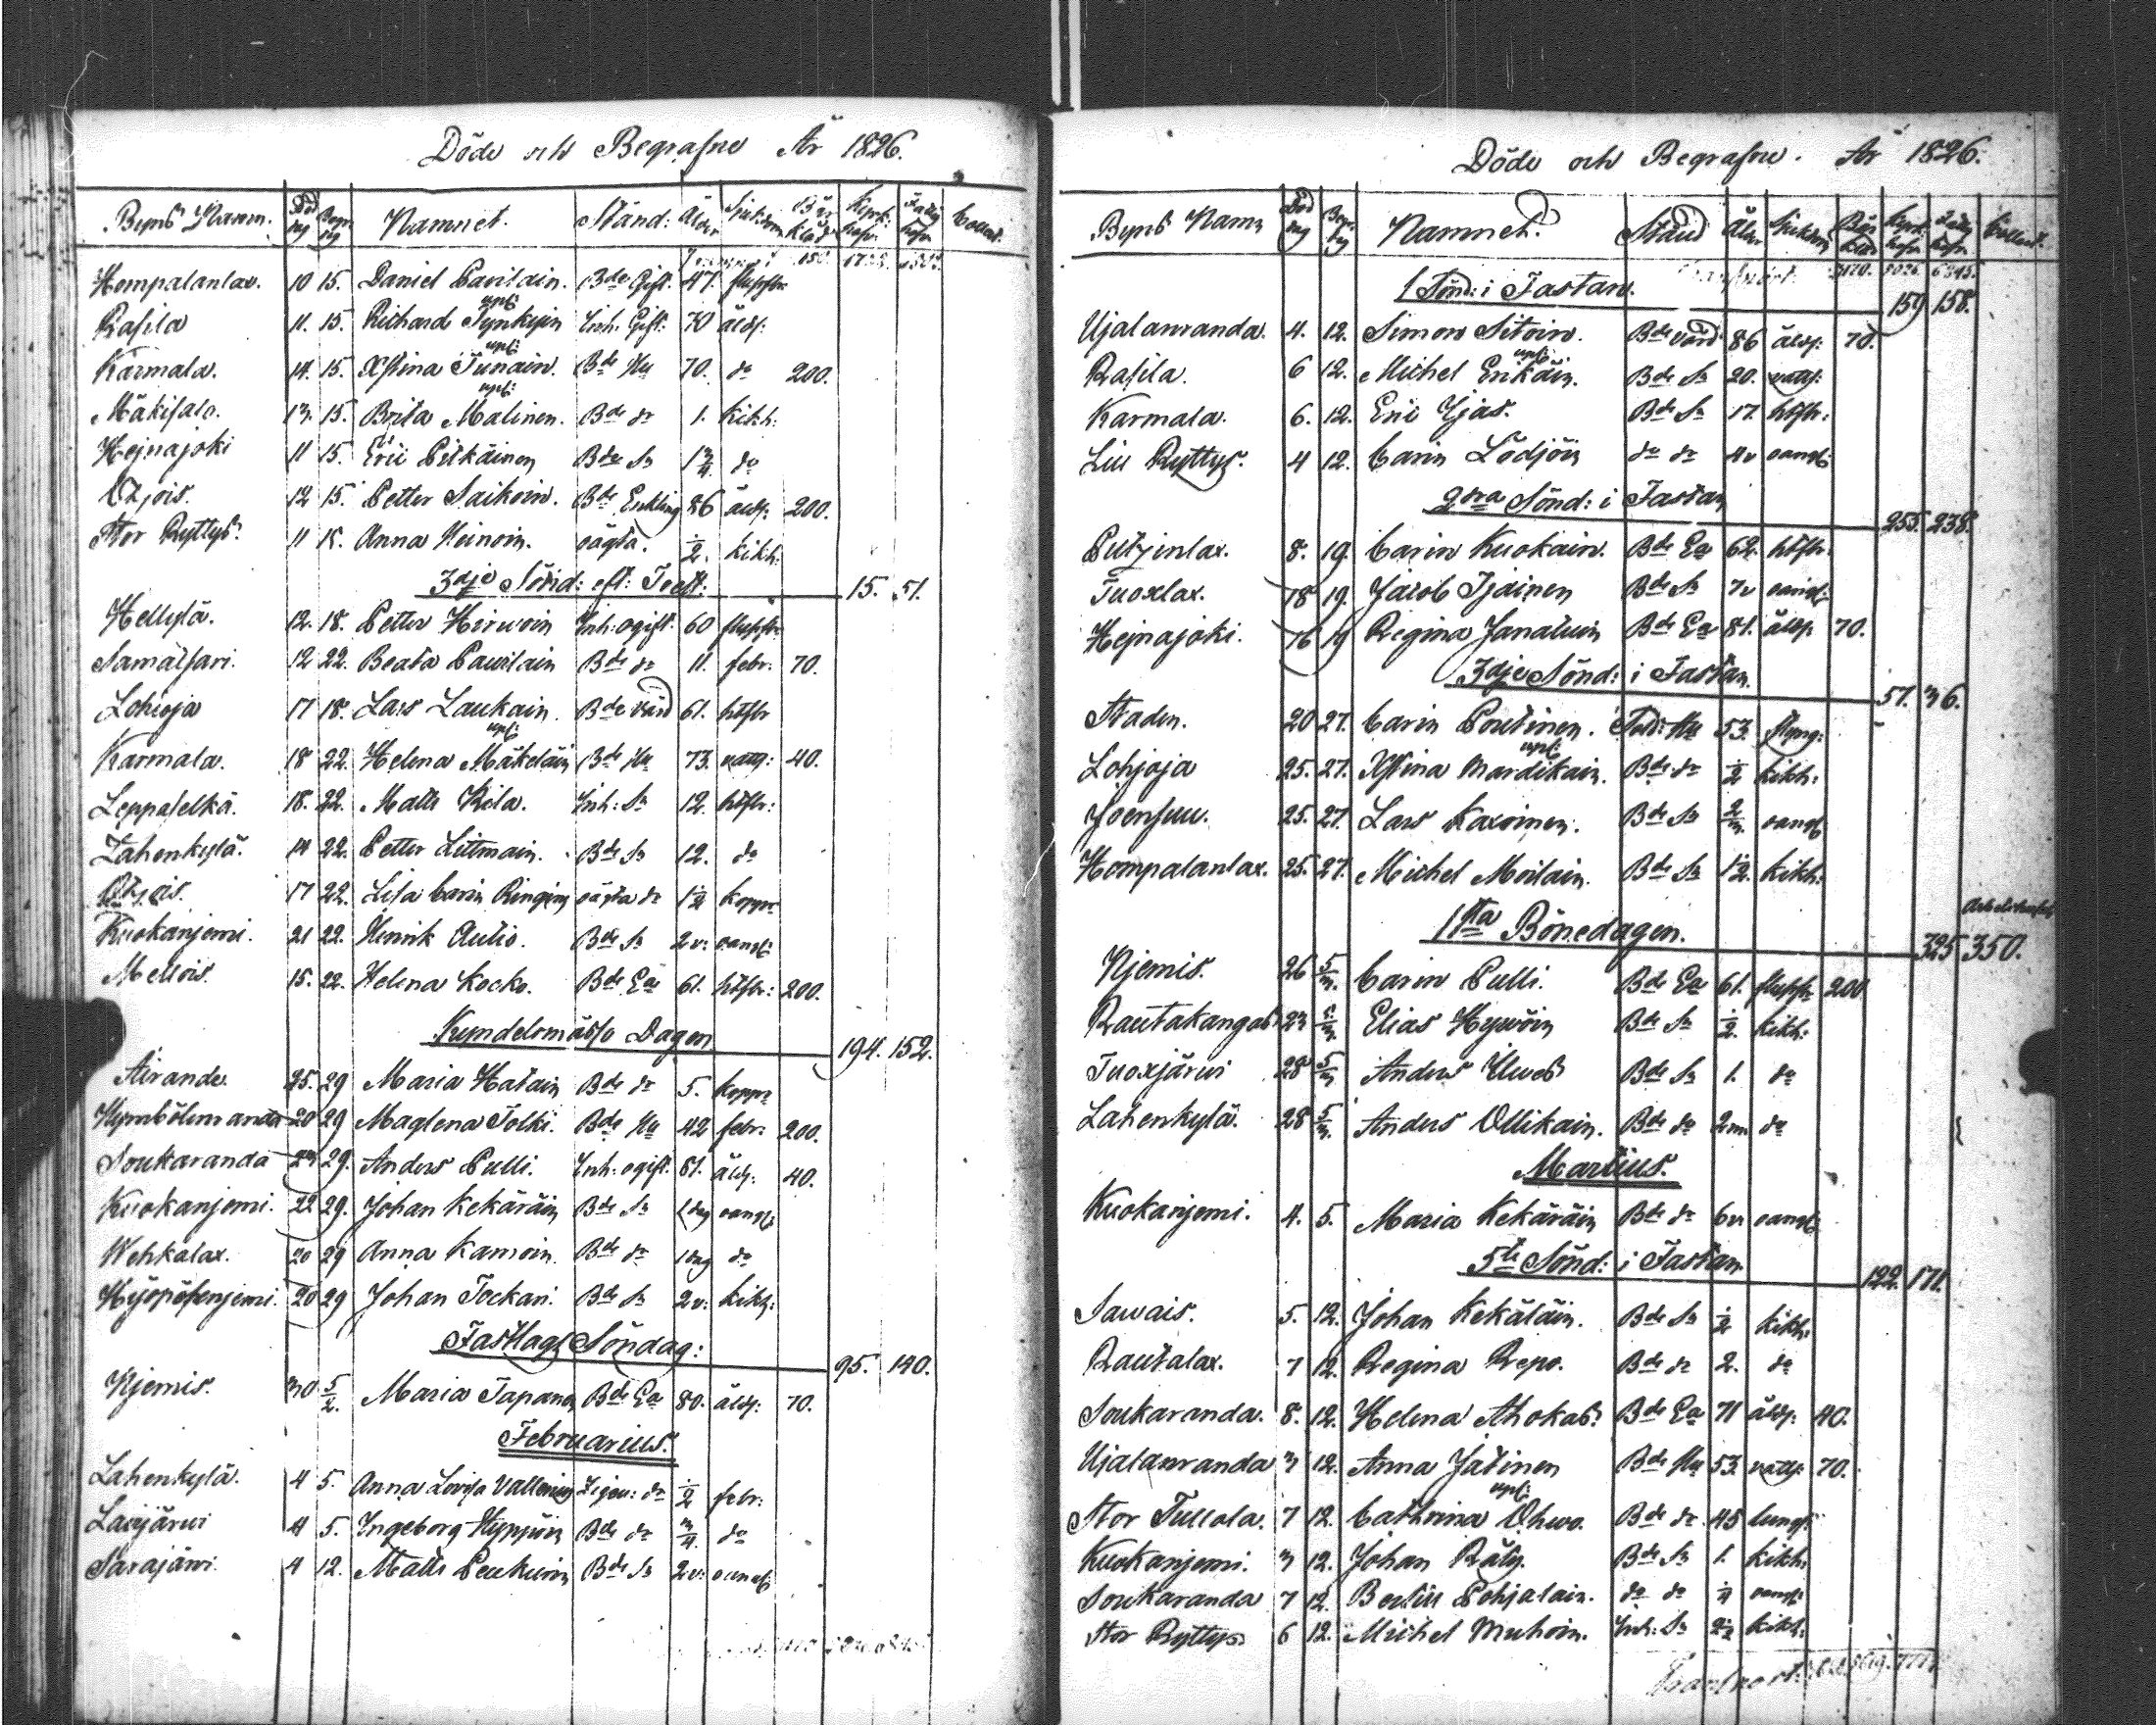 Döde och Begrafne År 1826.
Byns Namn. Död dag Begr: dag Namnet. Stånd: Ålder Sjukdom Bår Kläd: Kyrk: håfv: Fattig håfv: Collect:
Hompalanlax. 10 15. Daniel Pavilain. Bde Gift. 47. flussfbr
Rasila 11. 15. Richard Tynkyin Inh: Gift: 70 åldr:
Kärmala. 14. 15. Xstina Junain. Bde Hu 70. do 200.
Mäkisalo. 13. 15. Brita Malinen. Bde dr 1. Kikh:
Hejnajoki 11 15. Eric Pitkäinen Bde Sn 1 3/4 do
Otzois. 12 15. Petter Saikoin. Bde Enkling 86 åldr: 200.
Stor Ryttys 11 15. Anna Heinoin. oägta. 1/2 kikh:
3dje Sönd: eft: Trett: 15. 51.
Hellylä. 12. 18. Petter Hirwoin Inh: ogift. 60 flussfbr
Samatsari. 12 22. Beata Pavilain Bde dr 11. febr: 70.
Lohioja 17 18. Lars Laukain. Bde värd 61. hetsfbr
Karmala. 18 22. Helena Mäkeläin Bde Hu 73. vatts: 40.
Leppäselkä. 18. 22. Matts Kola. Inh: Sn 12. hetsfbr:
Lahenkylä. 14 22. Petter Littmain. Bde Sn 12. do
Otzois. 17 22. Lisa Carin Ringin oägta dr 1 1/2 koppr
Kuokanjemi. 21 22. Henrik Autio. Bde Sn 2v: oangif:
Mellois. 15. 22. Helena Kocko. Bde Ea 61. hetsfbr: 200.
Kyndelsmässo Dagen 194. 152.
Airande. 25. 29 Maria Hatain Bde dr 5. koppr
Kymbölemranda 20 29 Maglena Tolki. Bde Hu 42 febr: 200.
Soukaranda 23 29. Anders Pulli. Inh: ogift. 61. åldr: 40.
Kuokanjemi. 22 29. Johan Kekäräin Bde Sn 1 dag oangif:
Wehkalax. 20 29 Anna Kamoin. Bde dr 1 dag do
Hyöpösenjemi. 20 29 Johan Tockari. Bde Sn 2v: kikh:
Fastlags Söndag: 95. 140.
Njemis. 30 5/2. Maria Tapanan Bde Ea 80. åldr: 70.
Februarius.
Lahenkylä. 4 5. Anna Lovisa Vallenius Zigen: dr 1/2 febr:
Lavijärvi 4 5. Ingeborg Hyppöin Bde dr 3/4 do
Sarajärvi. 4 12. Matts Peukuin Bde Sn 2v: oangif:
Döde och Begrafne. År 1826.
Byns Namn Död dag Begr: dag Namnet. Stånd Ålder Sjukdom Bår kläd: Kyrk: håfv: Fattig håfv: Collect:
1 Sönd: i Fastan. 159 158.
Ujalanranda. 4. 12. Simon Sitoin. Bde värd 86 åldr: 70.
Rasila. 6 12. Michel Erikäin. Bde Sn 20. vatts:
Karmala. 6. 12. Eric Ijas. Bde Sn 17 hetsfbr:
Lill Ryttys. 4 12. Carin Lödjöin do dr 4v oangif:
2dra Sönd: i Fastan 255. 238.
Putzinlax. 8. 19. Carin Kuokain. Bde Ea 62. hetsfbr:
Tuoxlax. 18 19. Jacob Ijäinen Bde Sn 7v oangif:
Hejnajoki. 16 19 Regina Janatuin Bde Ea 81. åldr 70.
3dje Sönd: i Fastan. 57. 36.
Staden. 20 27. Carin Poutinen. Sold: Hu 53. styng:
Lohjoja 25. 27. Xstina Mardikain. Bde dr 1/2 kikh:
Joensuu. 25. 27. Lars Kaxoinen. Bde Sn 2/m. oangif
Hompalanlax. 25. 27. Michel Moilain. Bde Sn 1 1/2. kikh:
1sta Bönedagen. 325 350.
Njemis. 26 5/3. Carin Pulli. Bde Ea 61. flussfbr 200
Rautakangas 23 5/3. Elias Hywöin Bde Sn 1/2. kikh:
Tuoxjärvi 28 5/3 Anders Ilves Bde Sn 1. do
Lahenkylä. 28 5/3. Anders Ollikain. Bde do 2m do
Martius.
Kuokanjemi. 4. 5. Maria Kekäräin Bde dr 6v oangif:
5te Sönd: i Fastan 122. 171.
Sawais. 5. 12. Johan Kekäläin. Bde Sn 1/2 kikh:
Rautalax. 7 12. Regina Repo. Bde dr 2. do
Soukaranda. 8. 12. Helena Ahokas. Bde Ea 71 åldr: 40.
Ujalanranda 3 12. Anna Jätinen Bde Hu 53. vatts: 70.
Stor Tullola. 7 12. Cathrina Ohwo. Bde dr 45 lungs:
Kuokanjemi. 3 12. Johan Räty. Bde Sn 1. kikh:
Soukaranda 7 12. Bertill Pohjalain. do do 1/4 oangif:
Stor Ryttys 6 12. Michel Muhoin. Inh: Sn 2 1/2 kikh: